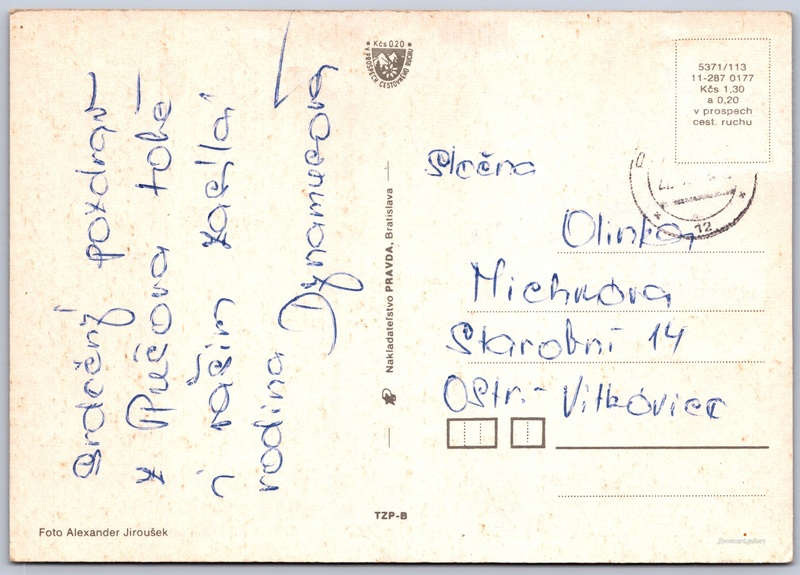 Srdečný pozdrav
z Pučova tobě
i vašim zasílá
rodina
Kčs 0.20
V PROSPECH CESTOVNÉHO RUCHU
5371/113
11-287 0177
Kčs 1,30
a 0,20
v prospech
cest. ruchu
12
Slečna
Olinka
Michnova
Starobní 14
Ostr.- Vítkovice
Nakladateľstvo PRAVDA, Bratislava
TZP-B
Foto Alexander Jiroušek